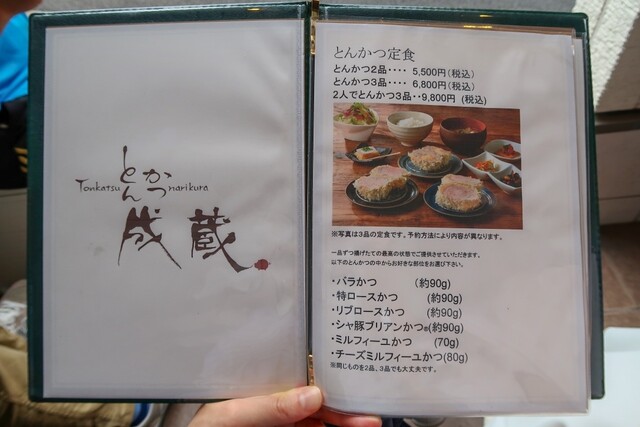 とんかつ
Tonkatsu narikura
成蔵
とんかつ定食
とんかつ2品‥‥ 5,500円(税込)
とんかつ3品‥‥ 6,800円(税込)
2人でとんかつ3品‥9,800円 (税込)
※写真は3品の定食です。予約方法により内容が異なります。
一品ずつ揚げたての最高の状態でご提供させていただきます。
以下のとんかつの中からお好きな部位をお選び下さい。
・バラかつ (約90g)
・特ロースかつ (約90g)
・リブロースかつ (約90g)
・シャ豚ブリアンかつ®(約90g)
・ミルフィーユかつ (70g)
・チーズミルフィーユかつ(80g)
※同じものを2品、3品でも大丈夫です。